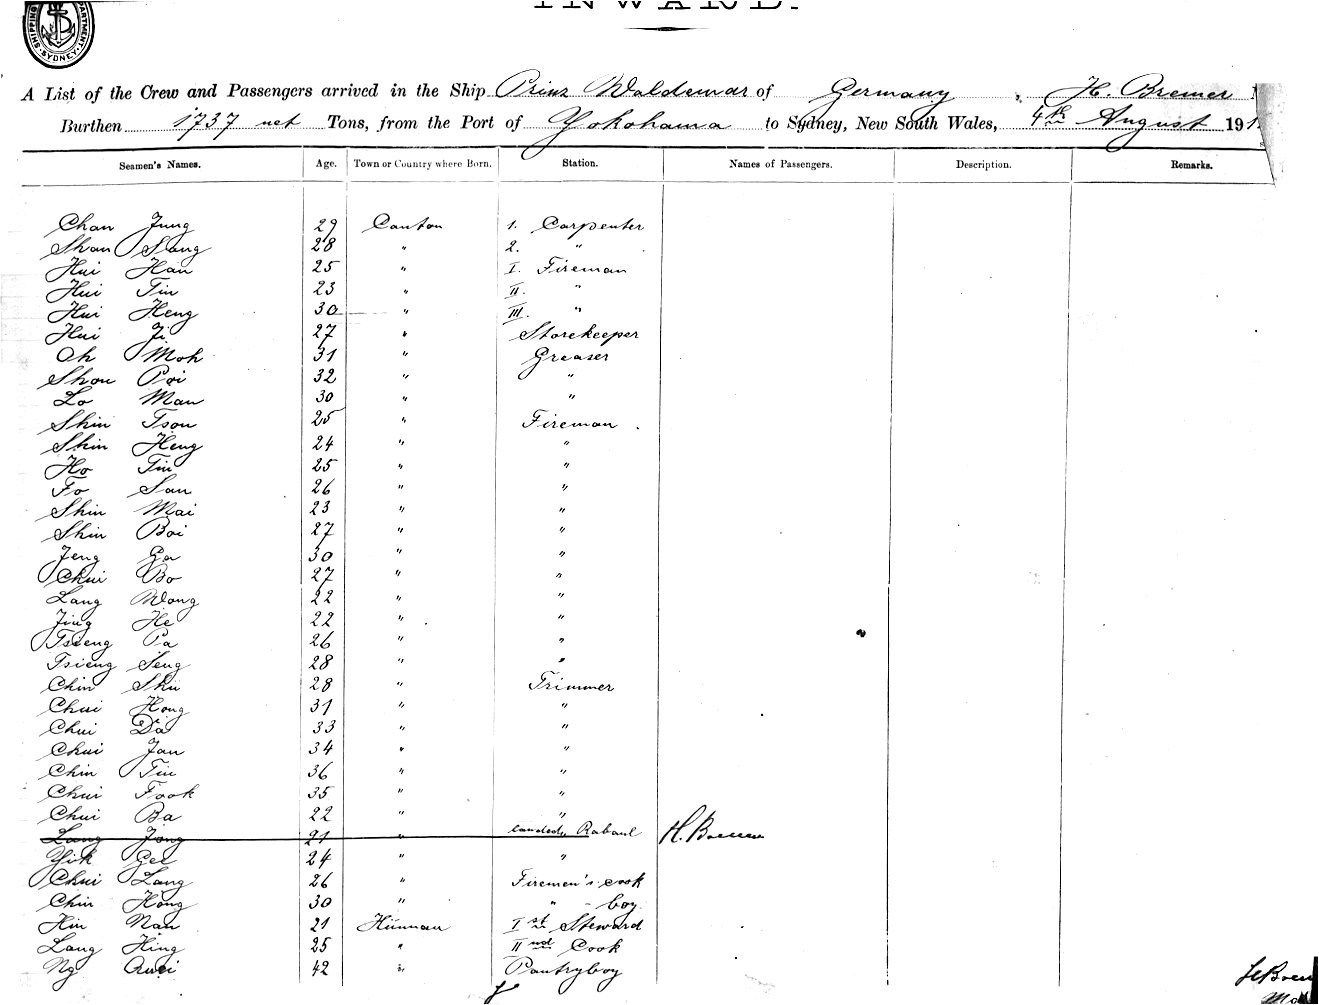 INWARD.
SHIPPING DEPARTMENT SYDNEY
A List of the Crew and Passengers arrived in the Ship Prinz Waldemar of Germany, H. Bremer
Burthen 1737 net Tons, from the Port of Yokohama to Sydney, New South Wales, 4th August 191
Seamen's Names. Age. Town or Country where Born. Station. Names of Passengers. Description. Remarks.
Chan Jung 29 Canton 1. Carpenter
Shan Sang 28 " 2. "
Hui Han 25 " I. Fireman
Hui Tin 23 " II. "
Hui Heng 30 " III. "
Hui Ji 27 " Storekeeper
Oh Moh 31 " Greaser
Shou Poi 32 " "
Lo Man 30 " "
Shin Tsou 25 " Fireman
Shin Heng 24 " "
Ho Tin 25 " "
Fo San 26 " "
Shin Mai 23 " "
Shin Boi 27 " "
Jeng Ga 30 " "
Chui Bo 27 " "
Lang Wong 22 " "
Jing He 22 " "
Tsieng Pa 26 " "
Tsieng Seng 28 " "
Chin Shu 28 " Trimmer
Chui Hong 31 " "
Chui Da 33 " "
Chui Jan 34 " "
Chin Tin 36 " "
Chui Fook 35 " "
Chui Ba 22 " "
Lang Jong 21 " landed Rabaul H. Bremer
Yik Gee 24 " "
Chui Lang 26 " Firemen's cook
Chin Hong 30 " " boy
Hin Nan 21 Hünnan Ist Steward
Lang Hing 25 " IInd Cook
Ng Quei 42 " Pantryboy